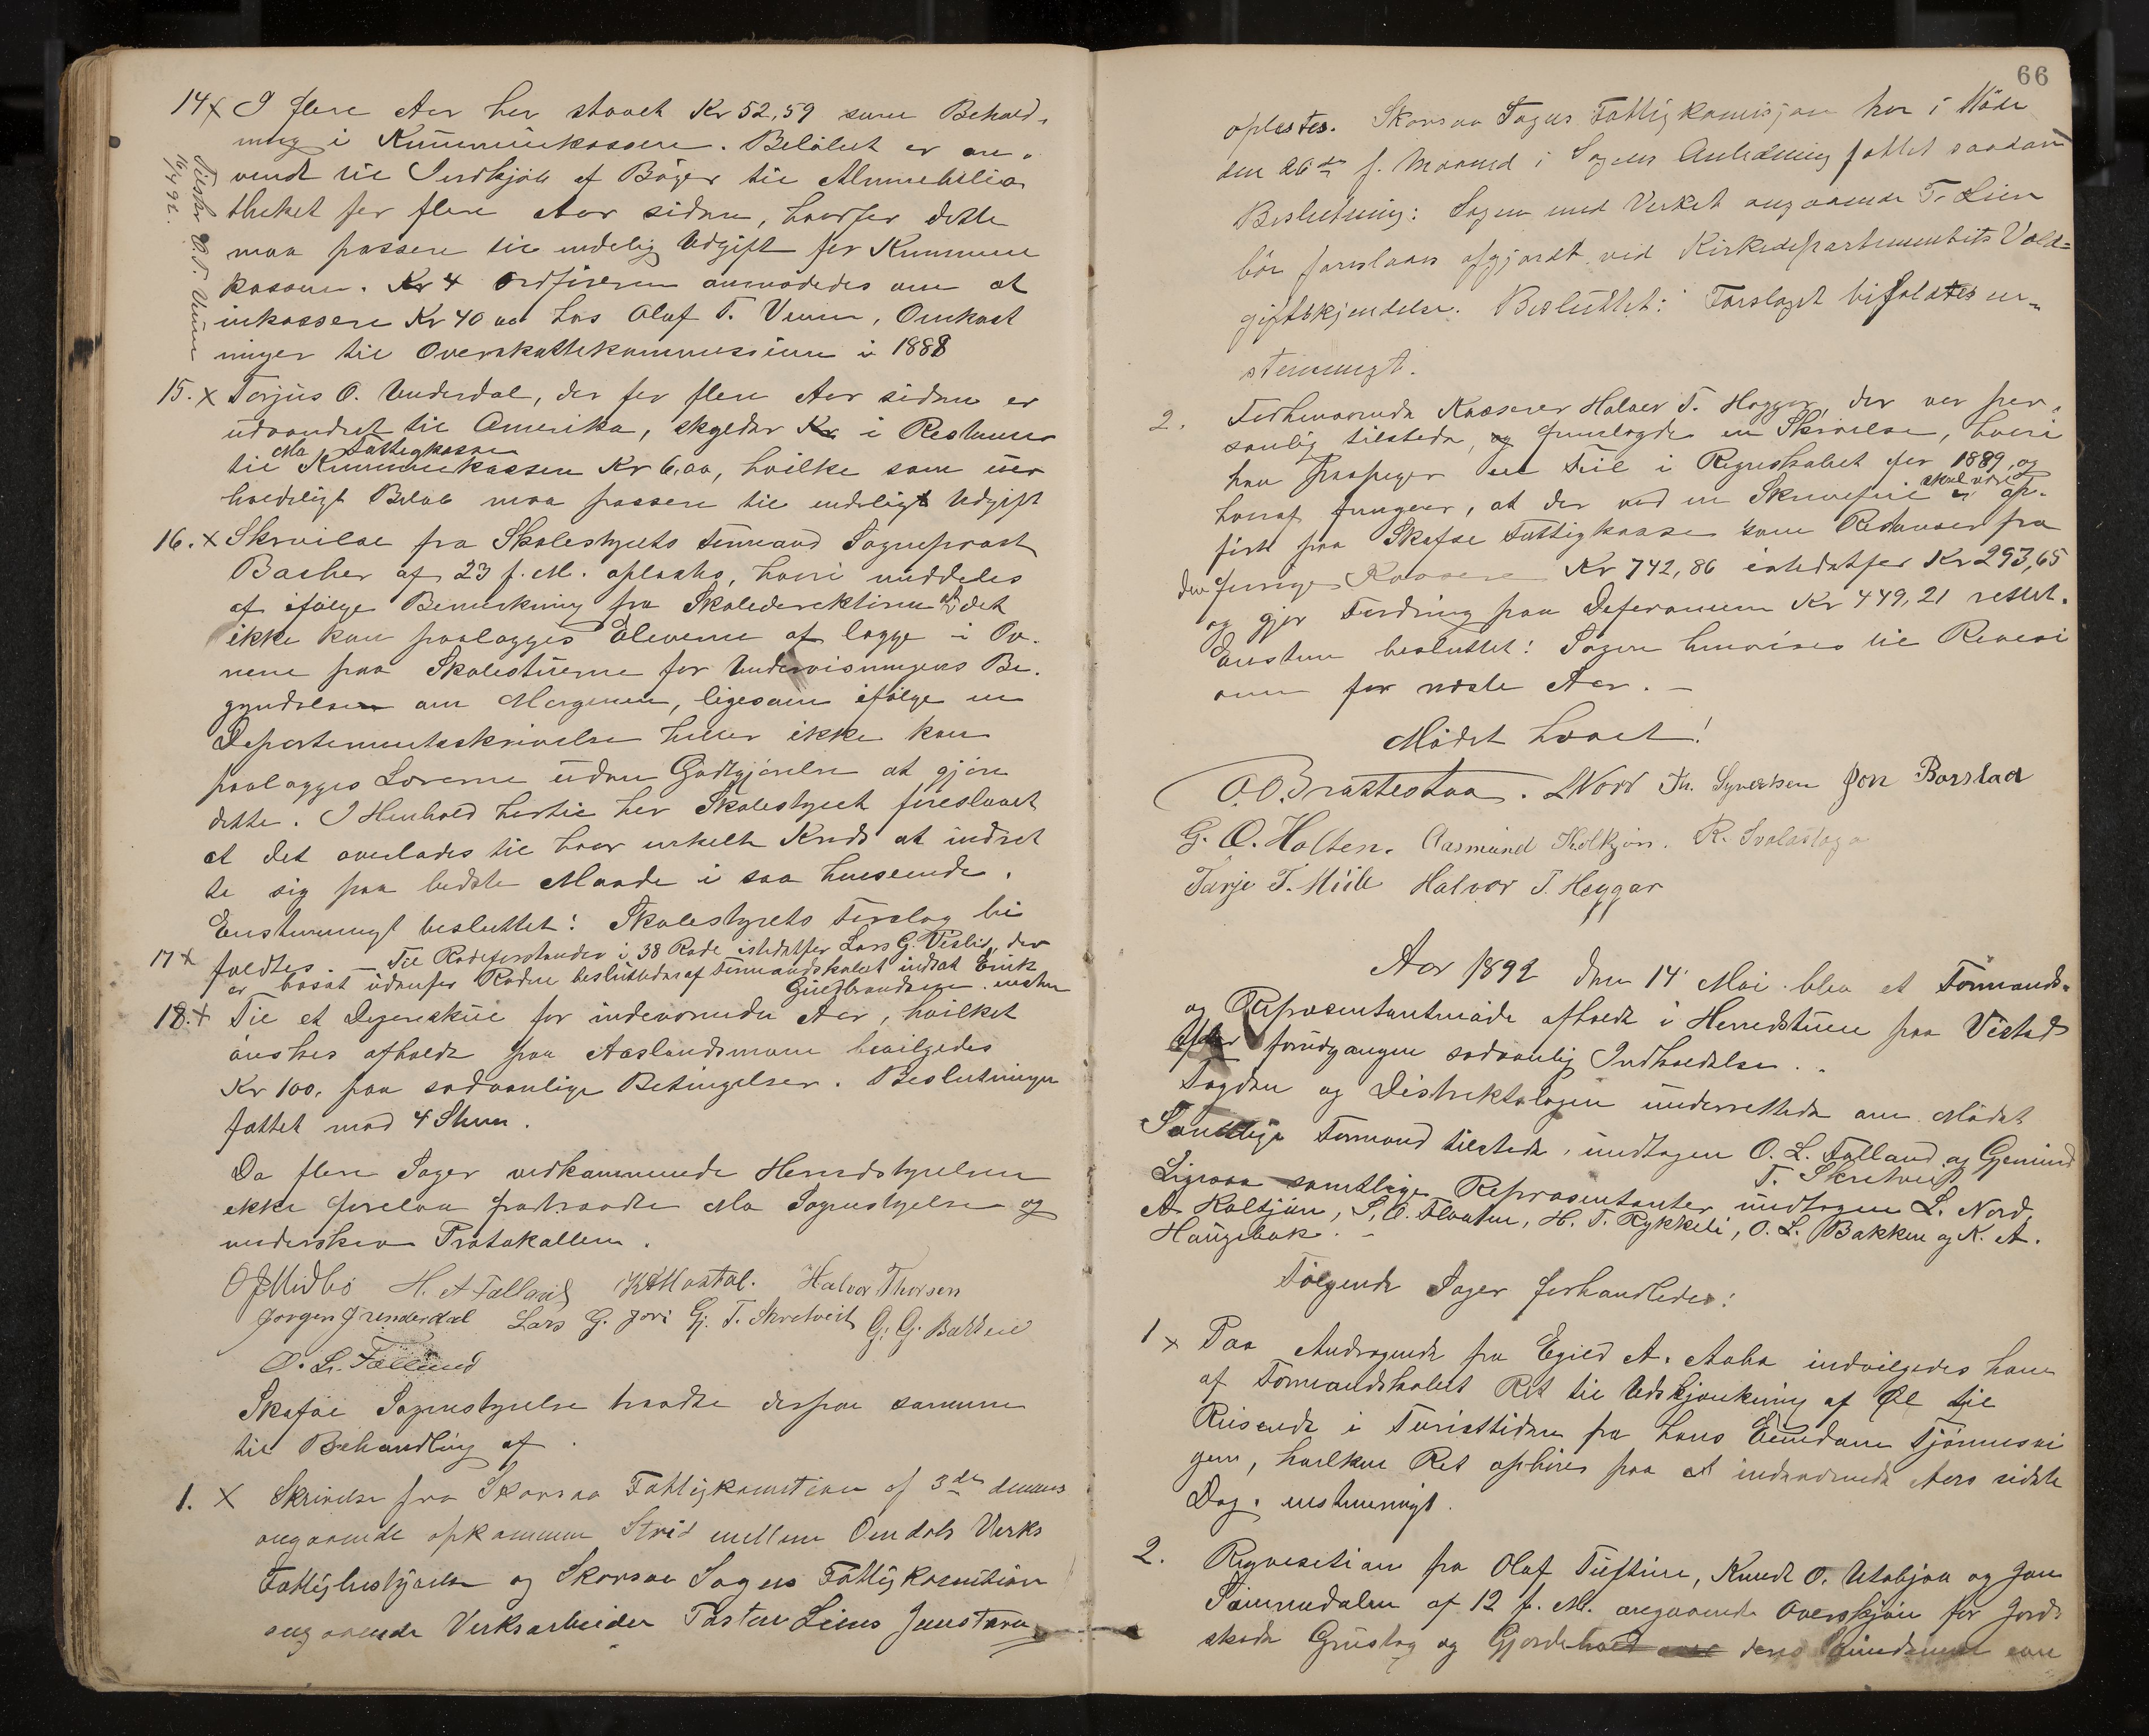 14 x I flere Aar har staaet Kr 52,59 som Behold-
ning i Kommunekassen. Beløbet er an-
vendt til Indkjøb af Bøger til Almuebiblio
theket for flere Aar siden, hvorfor dette
maa passere til endelig Udgift for Kommune
kassen. Kr 4 Ordføreren anmodedes om at
inkassere Kr 40 00 hos Olaf T. Vinim, Omkost
ninger til Overskattekommissionen i 1888
Tilskr. O.T.
16/4 92.
15. x Torjus O. Underdal, der for flere Aar siden er
udvandret til Amerika, skylder Kr i Restance
Mo Fattigkasse
til Kommunekassen Kr 6,00, hvilke som uer
holdeligt Beløb maa passere til endeligt Udgift
16. x Skrivelse fra Skolestyrets Formand Sogneprest
Bacher af 23 f. M. oplæstes, hvori meddeles
at ifølge Bemerkning fra Skoledirektionen at det
ikke kan paalægges Eleverne at lægge i Ov-
nene paa Skolestuerne før Undervisningens Be-
gyndelsen om Morgenen, ligesom ifølge en
Departementsskrivelse heller ikke kan
paalægges Lærerne uden Godtgjørelse at gjøre
dette. I Henhold hertil har Skolestyret foreslaaet
at det overlades til hver enkelt Kreds at indret
te sig paa bedste Maade i saa Henseende.
Enstemmigt besluttet: Skolestyrets Forslag bi
faldtes.
17 x Til Rodeforstander i 38 Rode istedetfor Lars G. Veslid, der
er bosat udenfor Roden besluttedes af Formandskabet indsat Erik
Guldbrandsen. enstem
18. x Til et Dyreskue for indeværende Aar, hvilket
ønskes afholdt paa Aaslandsmoen bevilgedes
Kr 100, paa sædvanlige Betingelser. Beslutningen
fattet mod 4 Stem.
Da flere Sager vedkommende Herredstyrelsen
ikke forelaa fratraadte Mo Sognestyrelse og
underskrev Protokollen.
O J Midbö H. A Falland K A Mostøl. Halvor Thorsen
Jørgen Grunderdal Lars G. Jore Gj. T. Skretveit G. G. Bakken
O. L. Falland
Skafse Sognestyrelse traadte derpaa sammen
til Behandling af
1. x Skrivelse fra Skavsaa Fattigkomition af 3die dennes
angaaende opkommen Strid mellem Omdals Verks
Fattigbestyrelse og Skavsaa Sogns Fattigkomition
angaaende Verksarbeider Tosten Liens Forsterm
66
oplæstes. Skavsaa Sogns Fattigkomisjon har i Møde
den 26de f. Maaned i Sagens Anledning fattet saadan
Beslutning: Sagen med Verket angaaende T. Lien
bør foreslaaes afgjordt ved Kirkedepartementets Vold-
giftskjendelse. Besluttet: Forslaget bifaldtes en-
stemmigt.
2. Fodhenværende Kasserer Halvor T. Heggar, der var per-
sonlig tilstede, og fremlagde en Skrivelse, hvori
han paapeger en Feil i Regnskabet for 1889, og
hvoraf fremgaar, at der ved en Skrivefeil skal være op-
ført paa Skafse Fattigkasse som Restancer fra
den forrige Kasserer Kr 742,86 istedetfor Kr 293,65
og gjør Fordring paa Differancen Kr 449,21 rettet.
Enstem besluttet: Sagen henvises til Revisi
onen for næste Aar. -
Mødet hævet!
O. O. Brattestaa. L Nord Tn. Syvertsen Jon Barstad
G. O. Holten. Aasmund Holtjøn. R. Svalastoga
Tarje T. Müle Halvor T. Heggar
Aar 1892 den 14 Mai blev et Formands-
og Repræsentantmøde afholdt i Herredstuen paa Vistad
efter forudgangen sædvanlig Indkaldelse. -
Fogden og Distriktslægen underrettede om Mødet
Samtlige Formænd tilstede, undtagen O. L. Falland og Gjermund
T. Skretveit
Ligesaa samtlige Repræsentanter undtagen L. Nord,
A. Holtjøn, S. O. Floaten, H. T. Rykkeli, O. L. Bakken og K. A.
Haugebak. -
Følgende Sager forhandledes:
1 x Paa Andragende fra Egild A. Aaba indvilgedes ham
af Formandskabet Ret til Udskjænkning af Øl til
Reisende i Turisttiden fra hans Eiendom Tjønnesvi
gen, hvilken Ret ophører paa et indeværende Aars sidste
Dag. enstemmigt.
2. Reqvisition fra Olaf Tuftene, Knudt O. Utabjaa og Jon
Simmedalen af 12 f. M. angaaende Overskjøn for Jord-
skade Grustag og Gjordehold dens Eiendomme ved